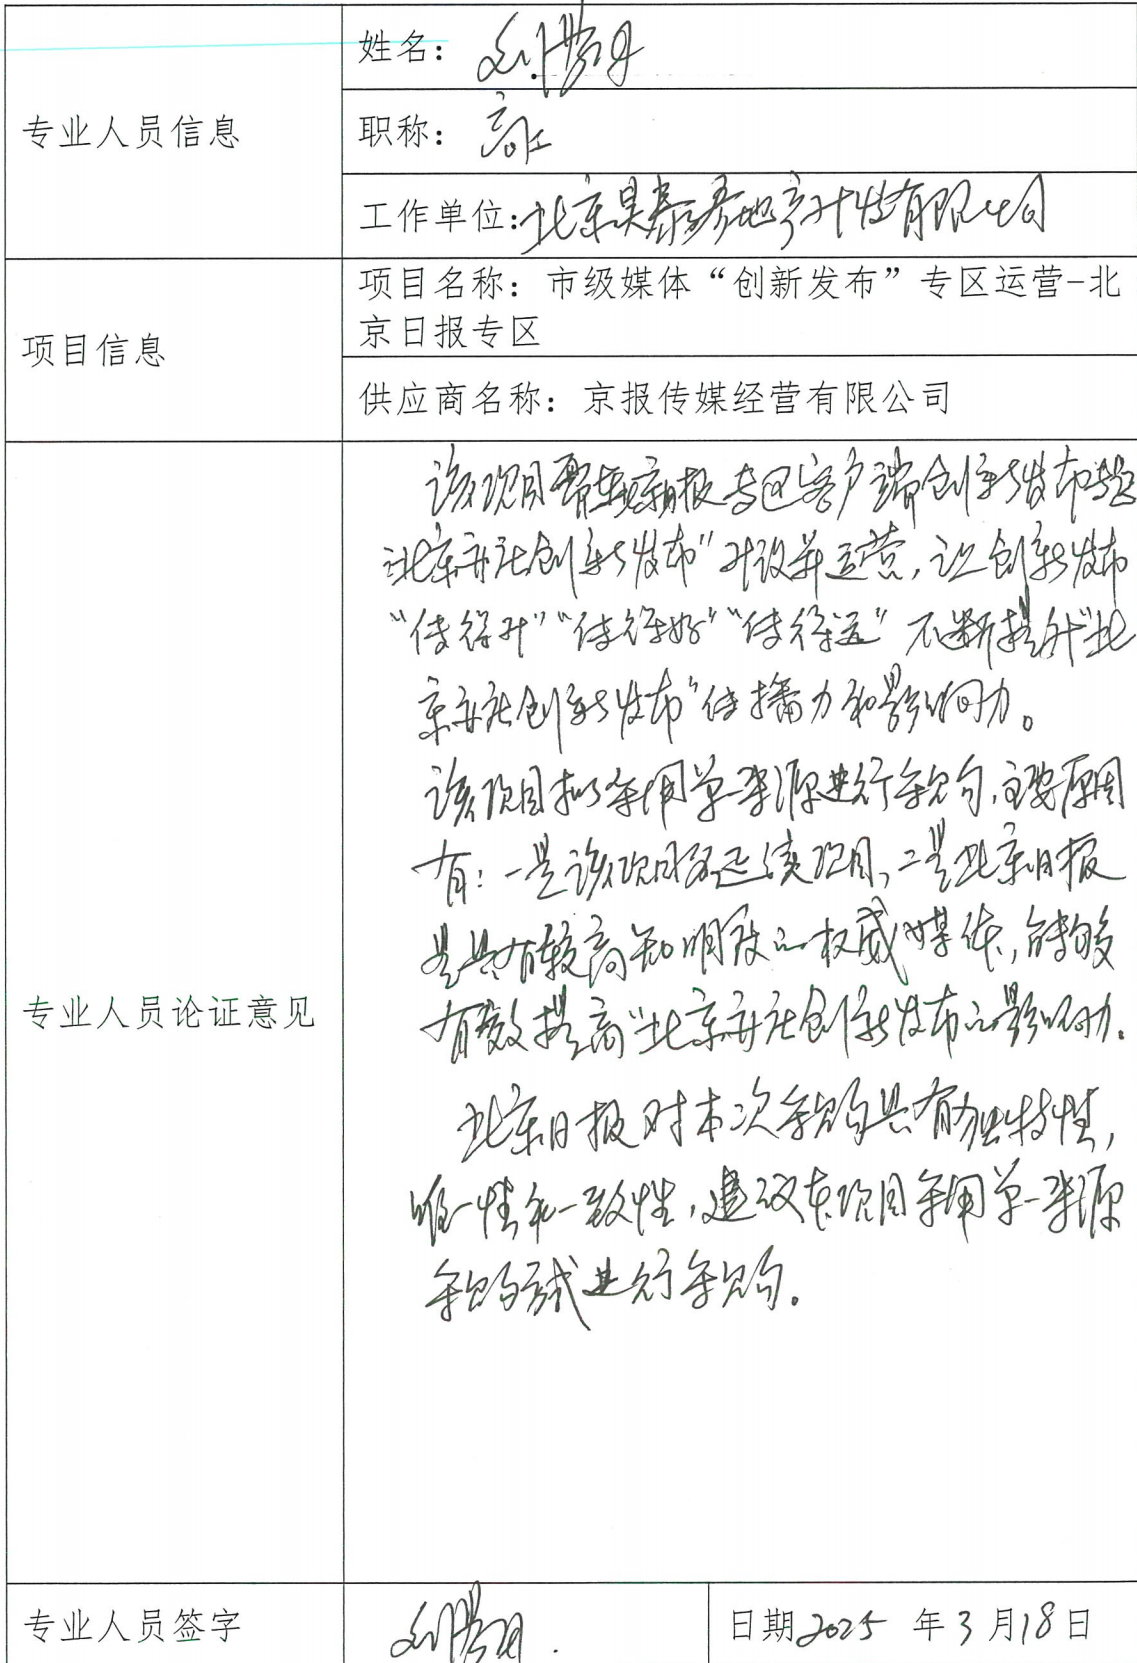 专业人员信息
姓名：刘
职称：高工
工作单位：北京昊泰房地产开发有限公司
项目信息
项目名称：市级媒体“创新发布”专区运营-北
京日报专区
供应商名称：京报传媒经营有限公司
专业人员论证意见
该项目聚焦北京日报专区客户端创新发布专区
“北京亦庄创新发布”开设并运营，让创新发布
“传得开”“传得好”“传得远”不断提升“北
京亦庄创新发布”传播力和影响力。
该项目拟采用单一来源进行采购，主要原因
有：一是该项目为延续项目，二是北京日报
是具有较高知明度的权威媒体，能够
有效提高“北京亦庄创新发布的影响力。
北京日报对本次采购具有独特性，
唯一性和一致性，建议本项目采用单一来源
采购方式进行采购。
专业人员签字
刘
日期2025 年3月18日